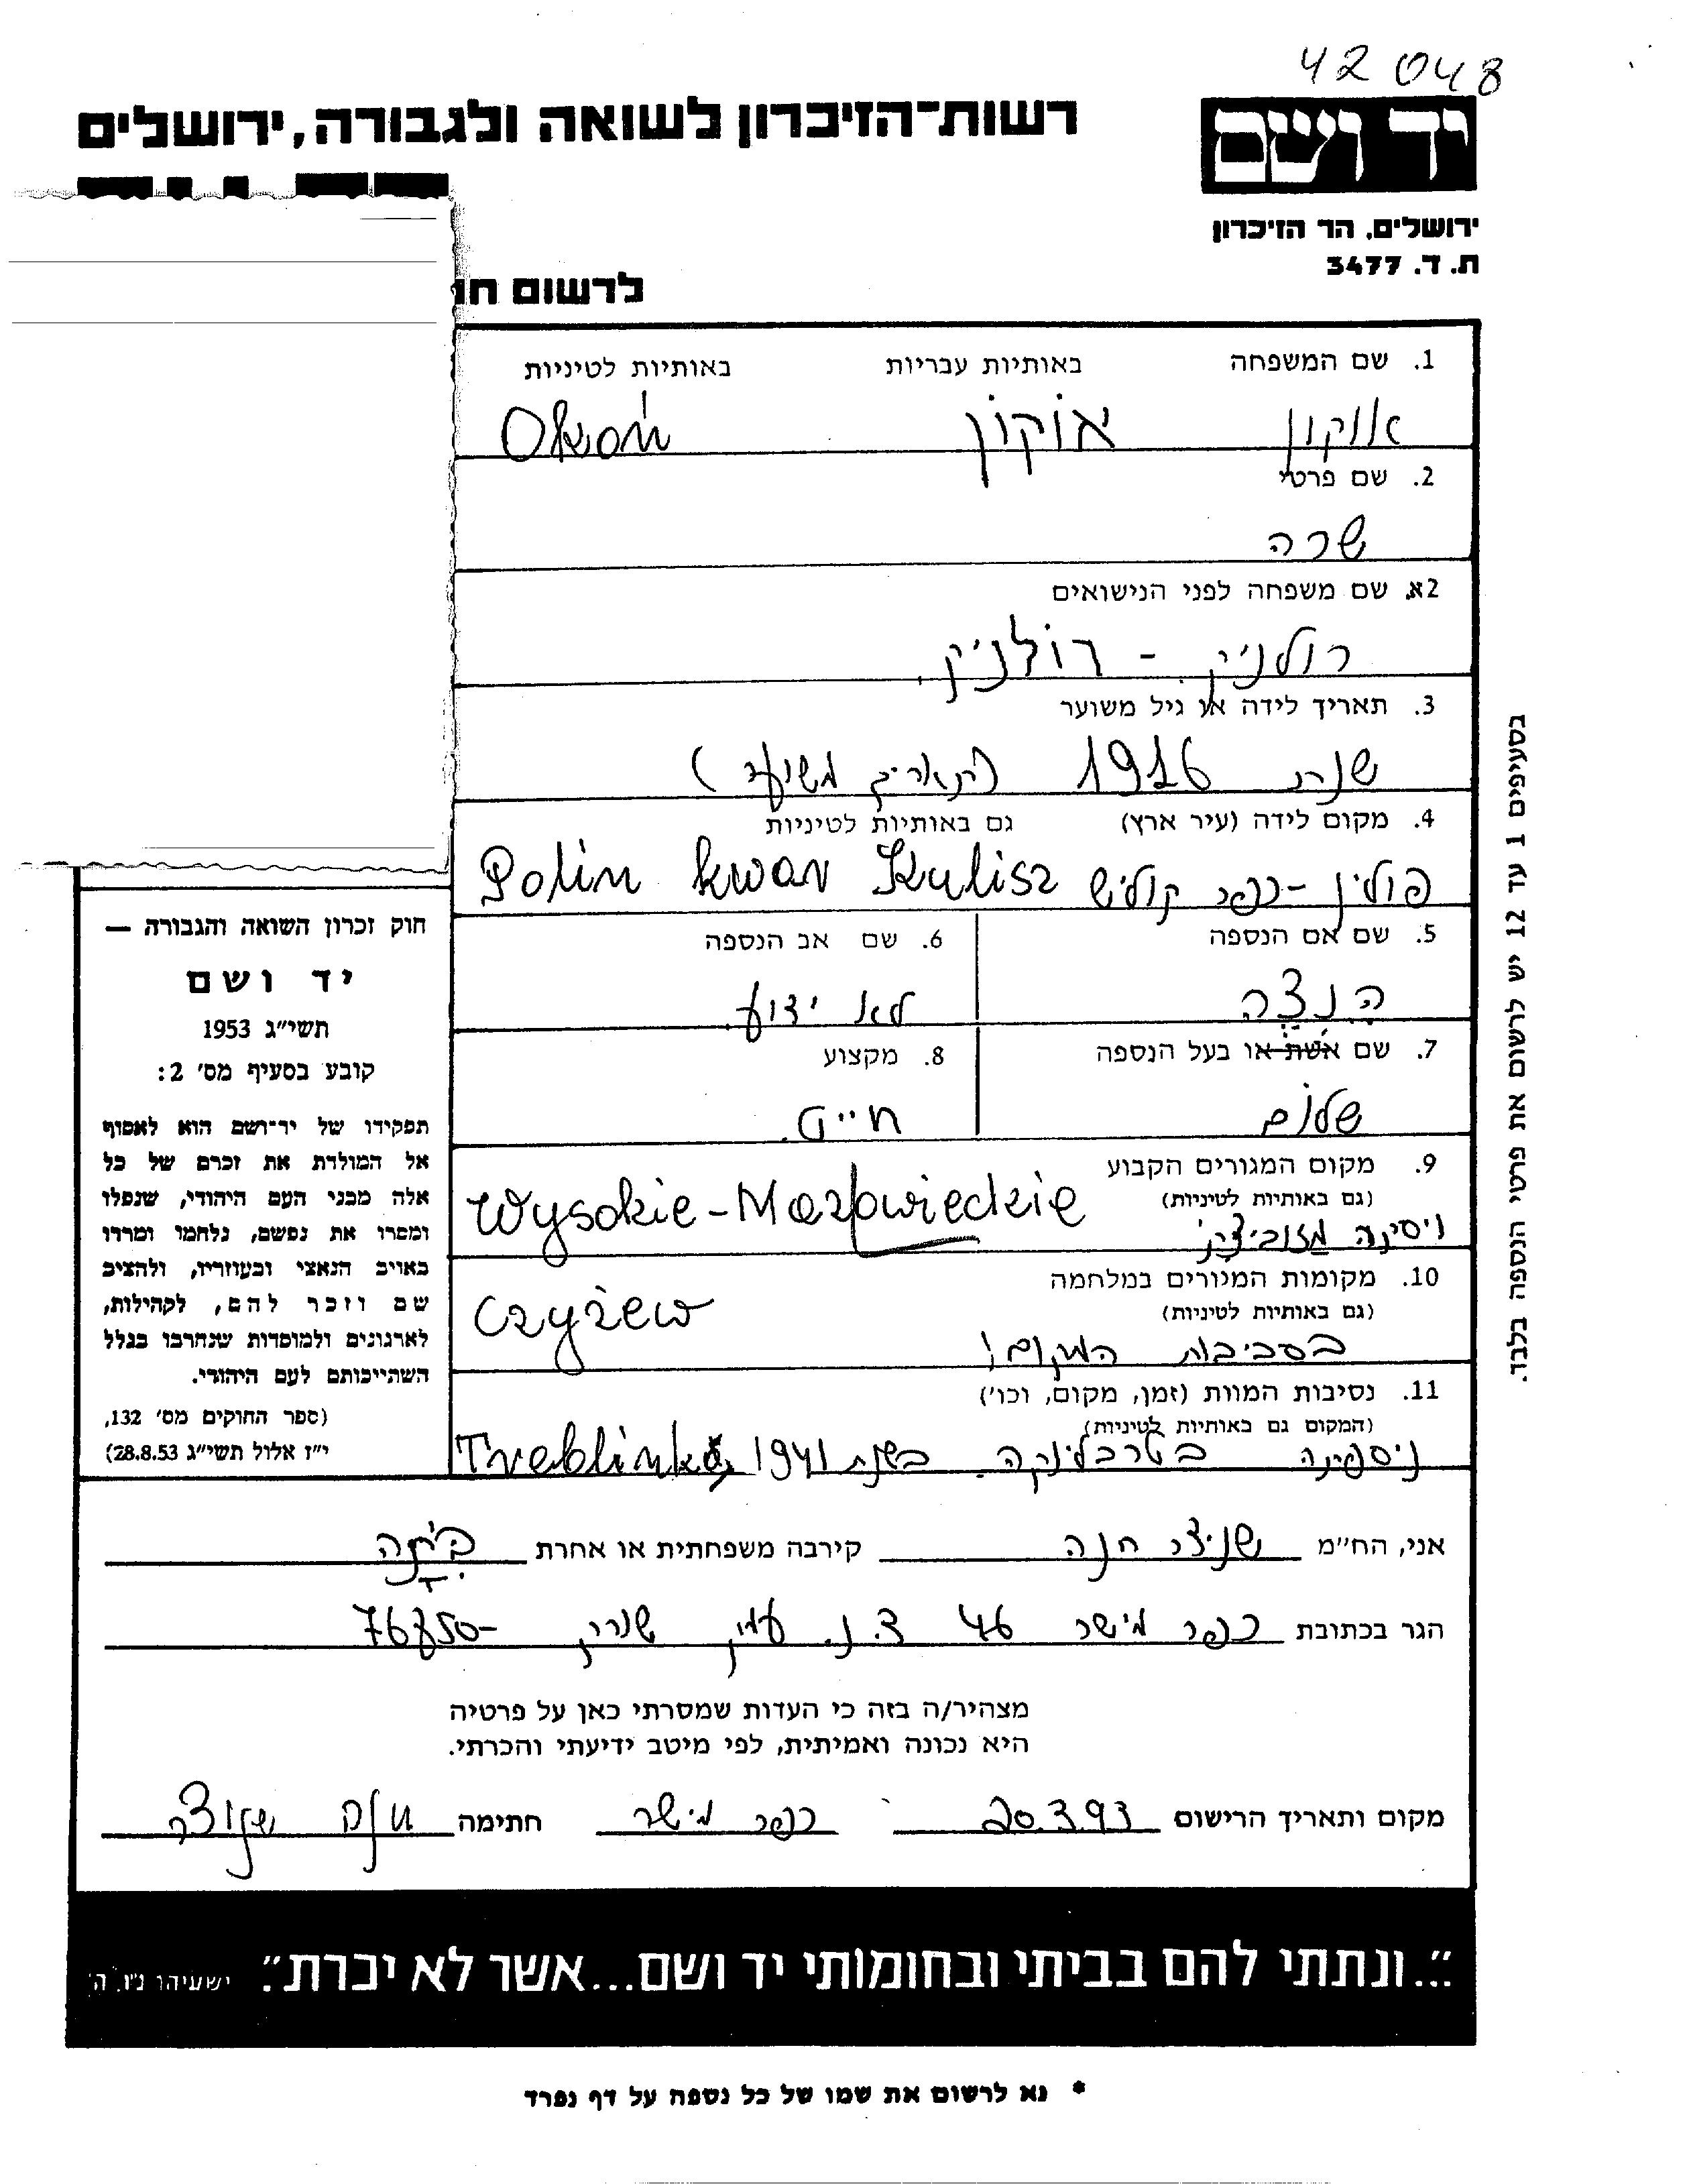 42 048
רשות־הזיכרון לשואה ולגבורה, ירושלים
יד ושם
ירושלים, הר הזיכרון
ת. ד. 3477
לרשום
1. שם המשפחה באותיות עבריות באותיות לטיניות
אוקון אוֹקוֹן Okoń
2. שם פרטי
שרה
2א. שם משפחה לפני הנישואים
רולניק - רוֹלניק.
3. תאריך לידה או גיל משוער
שנת 1916 (תאריך משוער)
4. מקום לידה (עיר ארץ) גם באותיות לטיניות
פולין - כפר קוליש Polin kwar Kulisz
5. שם אם הנספה
הנצה
6. שם אב הנספה
לא ידוע.
7. שם אשת או בעל הנספה
שלום
8. מקצוע
חייט.
9. מקום המגורים הקבוע
(גם באותיות לטיניות)
Wysokie-Mazowieckie
10. מקומות המגורים במלחמה
(גם באותיות לטיניות)
Czyżew
בסביבות המקום!
11. נסיבות המוות (זמן, מקום, וכו')
(המקום גם באותיות לטיניות)
ניספתה בטרבלינקה בשנת 1941 Treblinka
חוק זכרון השואה והגבורה —
יד ושם
תשי״ג 1953
קובע בסעיף מס׳ 2:
תפקידו של יד־ושם הוא לאסוף
אל המולדת את זכרם של כל
אלה מבני העם היהודי, שנפלו
ומסרו את נפשם, נלחמו ומרדו
באויב הנאצי ובעוזריו, ולהציב
שם וזכר להם, לקהילות,
לארגונים ולמוסדות שנחרבו בגלל
השתייכותם לעם היהודי.
(ספר החוקים מס׳ 132,
י״ז אלול תשי״ג 28.8.53)
אני, הח״מ שניצר חנה קירבה משפחתית או אחרת בִּתָה
הגר בכתובת כפר מישר 46 ד.נ. עמק שורק 76850-
מצהיר/ה בזה כי העדות שמסרתי כאן על פרטיה
היא נכונה ואמיתית, לפי מיטב ידיעתי והכרתי.
מקום ותאריך הרישום 20.3.93 כפר מישר חתימה חנה שניצר
״...ונתתי להם בביתי ובחומותי יד ושם...אשר לא יכרת״. ישעיהו נ״ו, ה׳
* נא לרשום את שמו של כל נספה על דף נפרד
בסעיפים 1 עד 12 יש לרשום את פרטי הנספה בלבד.